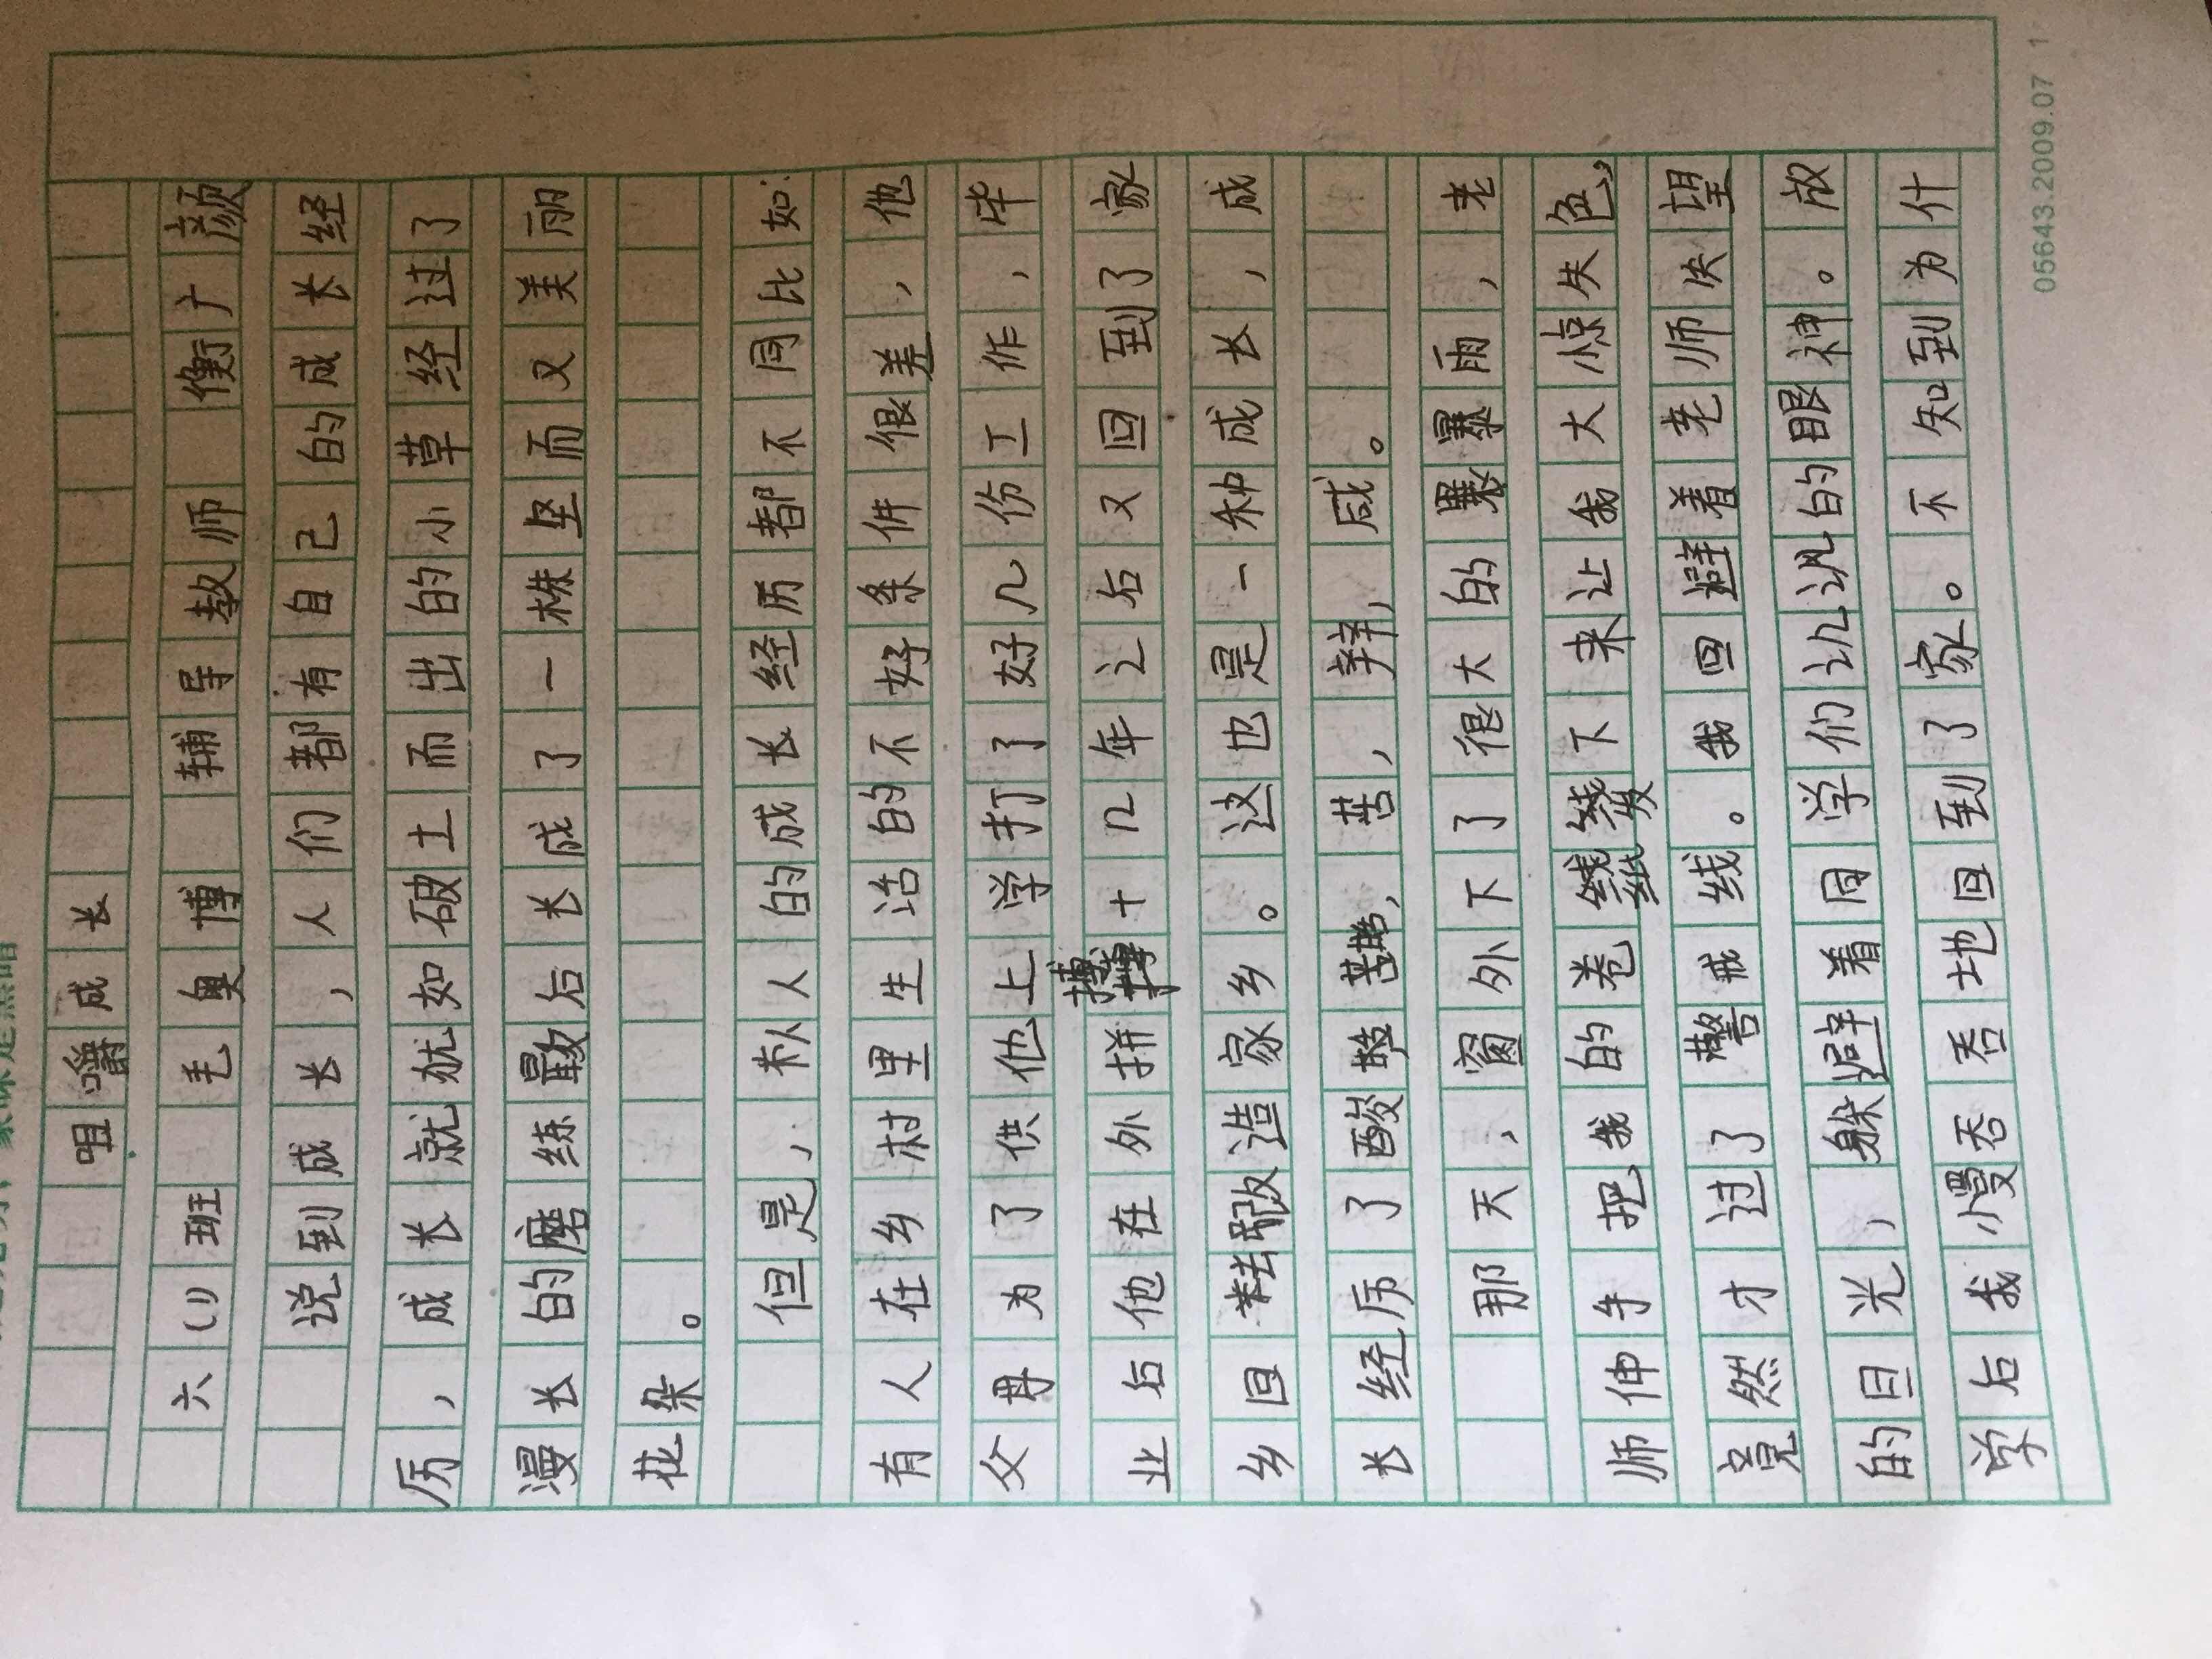 咀嚼成长
六(1)班 毛奥博 辅导教师 衡广颜
说到成长，人们都有自己的成长经
历，成长就犹如破土而出的小草经过了
漫长的磨练最后长成了一株坚而又美丽
花朵。
但是，村人的成长经历都不同比如:
有人在乡村里生活的不好条件很差，他
父母为了供他上学打了好几份工作，毕
业后他在外拼搏十几年之后又回到了家
乡回改造家乡。这也是一种成长，成
长经历了酸、苦、辣、咸。
那天，窗外下了很大的暴雨，老
师伸手把我的卷下来让我大惊失色，
竟然才过了警戒线。我回避着老师失望
的目光，躲避着同学们讥讽的眼神。放
学后我慢吞吞地回到了家。不知到为什
05643.2009.07 1